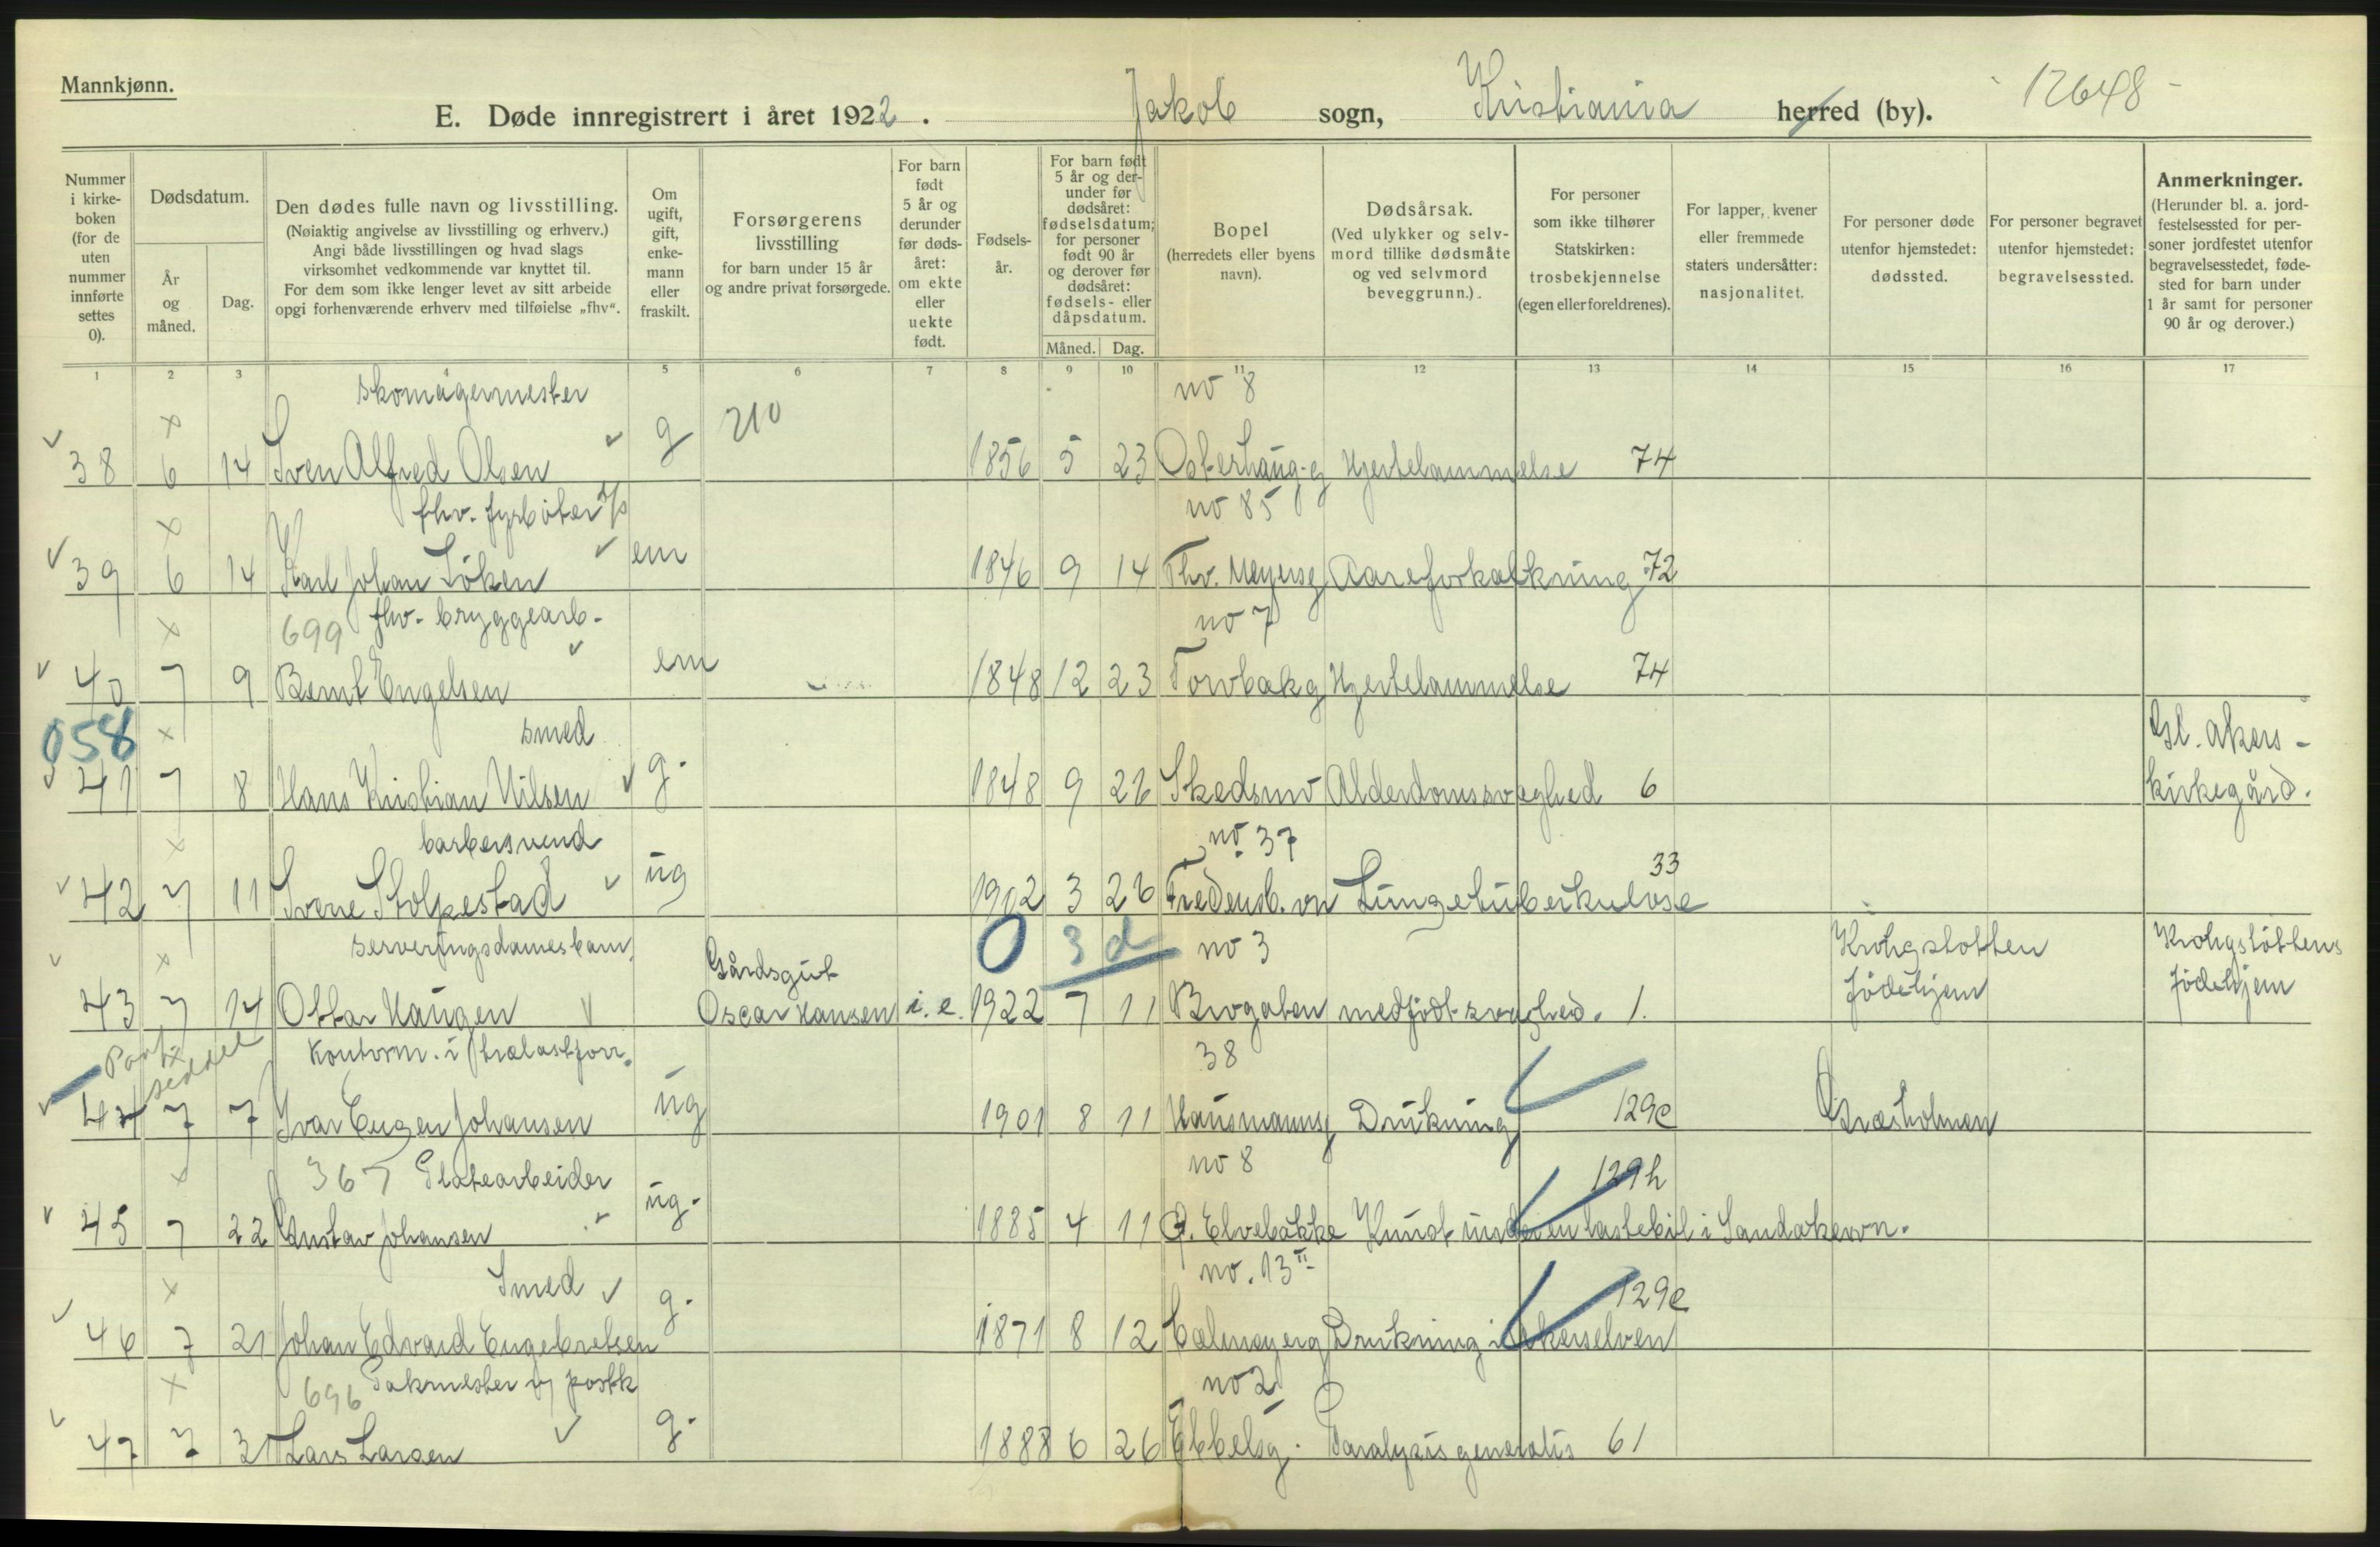 Mannkjønn.
E. Døde innregistrert i året 1922. Jakob sogn, Kristiania herred (by). 12648
Nummer i kirke-boken (for de uten nummer innførte settes 0).
Dødsdatum.
År og måned.
Dag.
Den dødes fulle navn og livsstilling.
(Nøiaktig angivelse av livsstilling og erhverv.)
Angi både livsstillingen og hvad slags
virksomhet vedkommende var knyttet til.
For dem som ikke lenger levet av sitt arbeide
opgi forhenværende erhverv med tilføielse „fhv“.
Om ugift, gift, enke-mann eller fraskilt.
Forsørgerens livsstilling
for barn under 15 år
og andre privat forsørgede.
For barn født 5 år og derunder før døds-året: om ekte eller uekte født.
Fødsels-år.
For barn født 5 år og der-under før dødsåret: fødselsdatum; for personer født 90 år og derover før dødsåret: fødsels- eller dåpsdatum.
Måned. Dag.
Bopel
(herredets eller byens navn).
Dødsårsak.
(Ved ulykker og selv-mord tillike dødsmåte og ved selvmord beveggrunn.).
For personer som ikke tilhører Statskirken: trosbekjennelse (egen eller foreldrenes).
For lapper, kvener eller fremmede staters undersåtter: nasjonalitet.
For personer døde utenfor hjemstedet: dødssted.
For personer begravet utenfor hjemstedet: begravelsessted.
Anmerkninger.
(Herunder bl. a. jord-festelsessted for per-soner jordfestet utenfor begravelsesstedet, føde-sted for barn under 1 år samt for personer 90 år og derover.)
1 2 3 4 5 6 7 8 9 10 11 12 13 14 15 16 17
skomagermester no 8
38 6 14 Sven Alfred Olsen g 210 1856 5 23 Osterhaug-g Hjertelammelse 74
fhv. fyrbøter no 85
39 6 14 Karl Johan Löken em 1846 9 14 Thv. Meyersg Aareforkalkning 72
699 fhv. bryggearb. no 7
40 7 9 Bernt Engelsen em 1848 12 23 Torvbakg Hjertelammelse 74
058 smed Gl. Akers-
41 7 8 Hans Kristian Nilsen g. 1848 9 26 Skedsmo Alderdomssvaghed 6 kirkegård.
barbersvend no. 37
42 7 11 Sverre Stolpestad ug 1902 3 26 Fredensb. vn Lungetuberkulose 33
serveringsdamesbarn Gårdsgut 0 3 d no 3 Krohgstötten Krohgstöttens
43 7 14 Ottar Haugen Oscar Hansen i. e. 1922 7 11 Brogaten medfödt svaghed. 1. födehjem födehjem
seddel Kontorm. i trælastforr. 38
44 7 7 Ivar Eugen Johansen ug 1901 8 11 Hausmannsg Drukning 129e Græsholmen
367 Platearbeider no 8 129h
45 7 22 Gustav Johansen ug. 1885 4 11 Ö. Elvebakke Knust under en lastebil i Sandakervn.
Smed no. 13 II 129e
46 7 21 Johan Edvard Engebretsen g. 1871 8 12 Calmeyerg Drukning i Akerselven
696 Pakmester v postk no 2
47 7 31 Lars Larsen g. 1888 6 26 Ebbelsg. Paralysis generalis 61